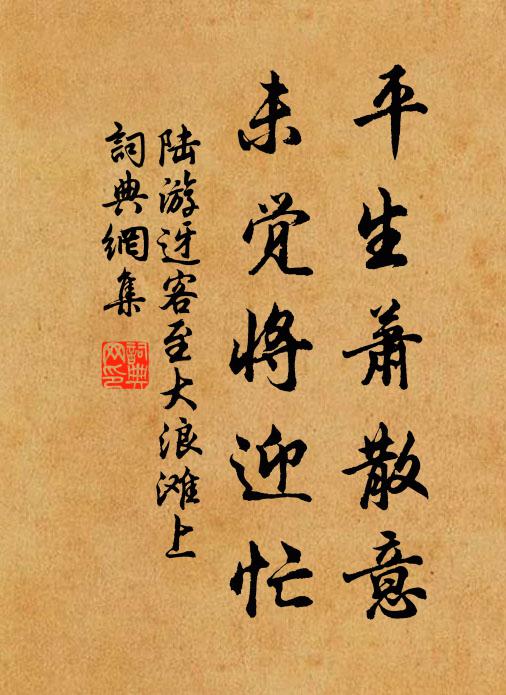 平生萧散意
未觉将迎忙
陆游迓客至大浪滩上
詞典網集
詞典网印